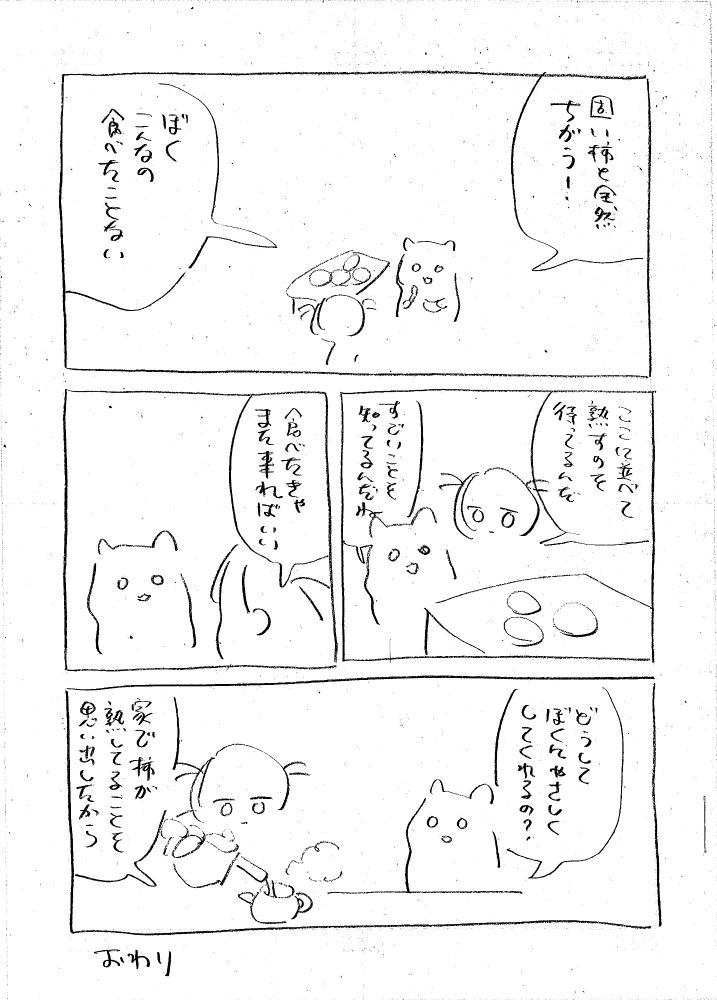 固い柿と全然
ちがうー!
ぼく
こんなの
食べたことない
ここに並べて
熟すのを
待ってるんだ
すごいことを
知ってるんだね
食べたきゃ
また来ればいい
どうして
ぼくにやさしく
してくれるの?
家で柿が
熟してることを
思い出したから
おわり